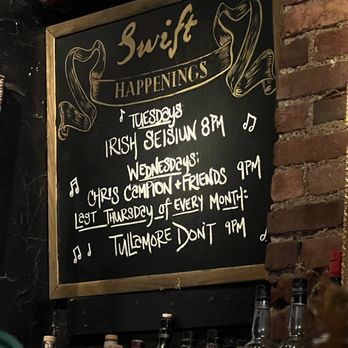 Swift
HAPPENINGS
TUESDAYS
IRISH SEISIUN 8PM
WEDNESDAYS:
CHRIS CAMPION + FRIENDS 9PM
LAST THURSDAY OF EVERY MONTH:
TULLAMORE DON'T 9PM